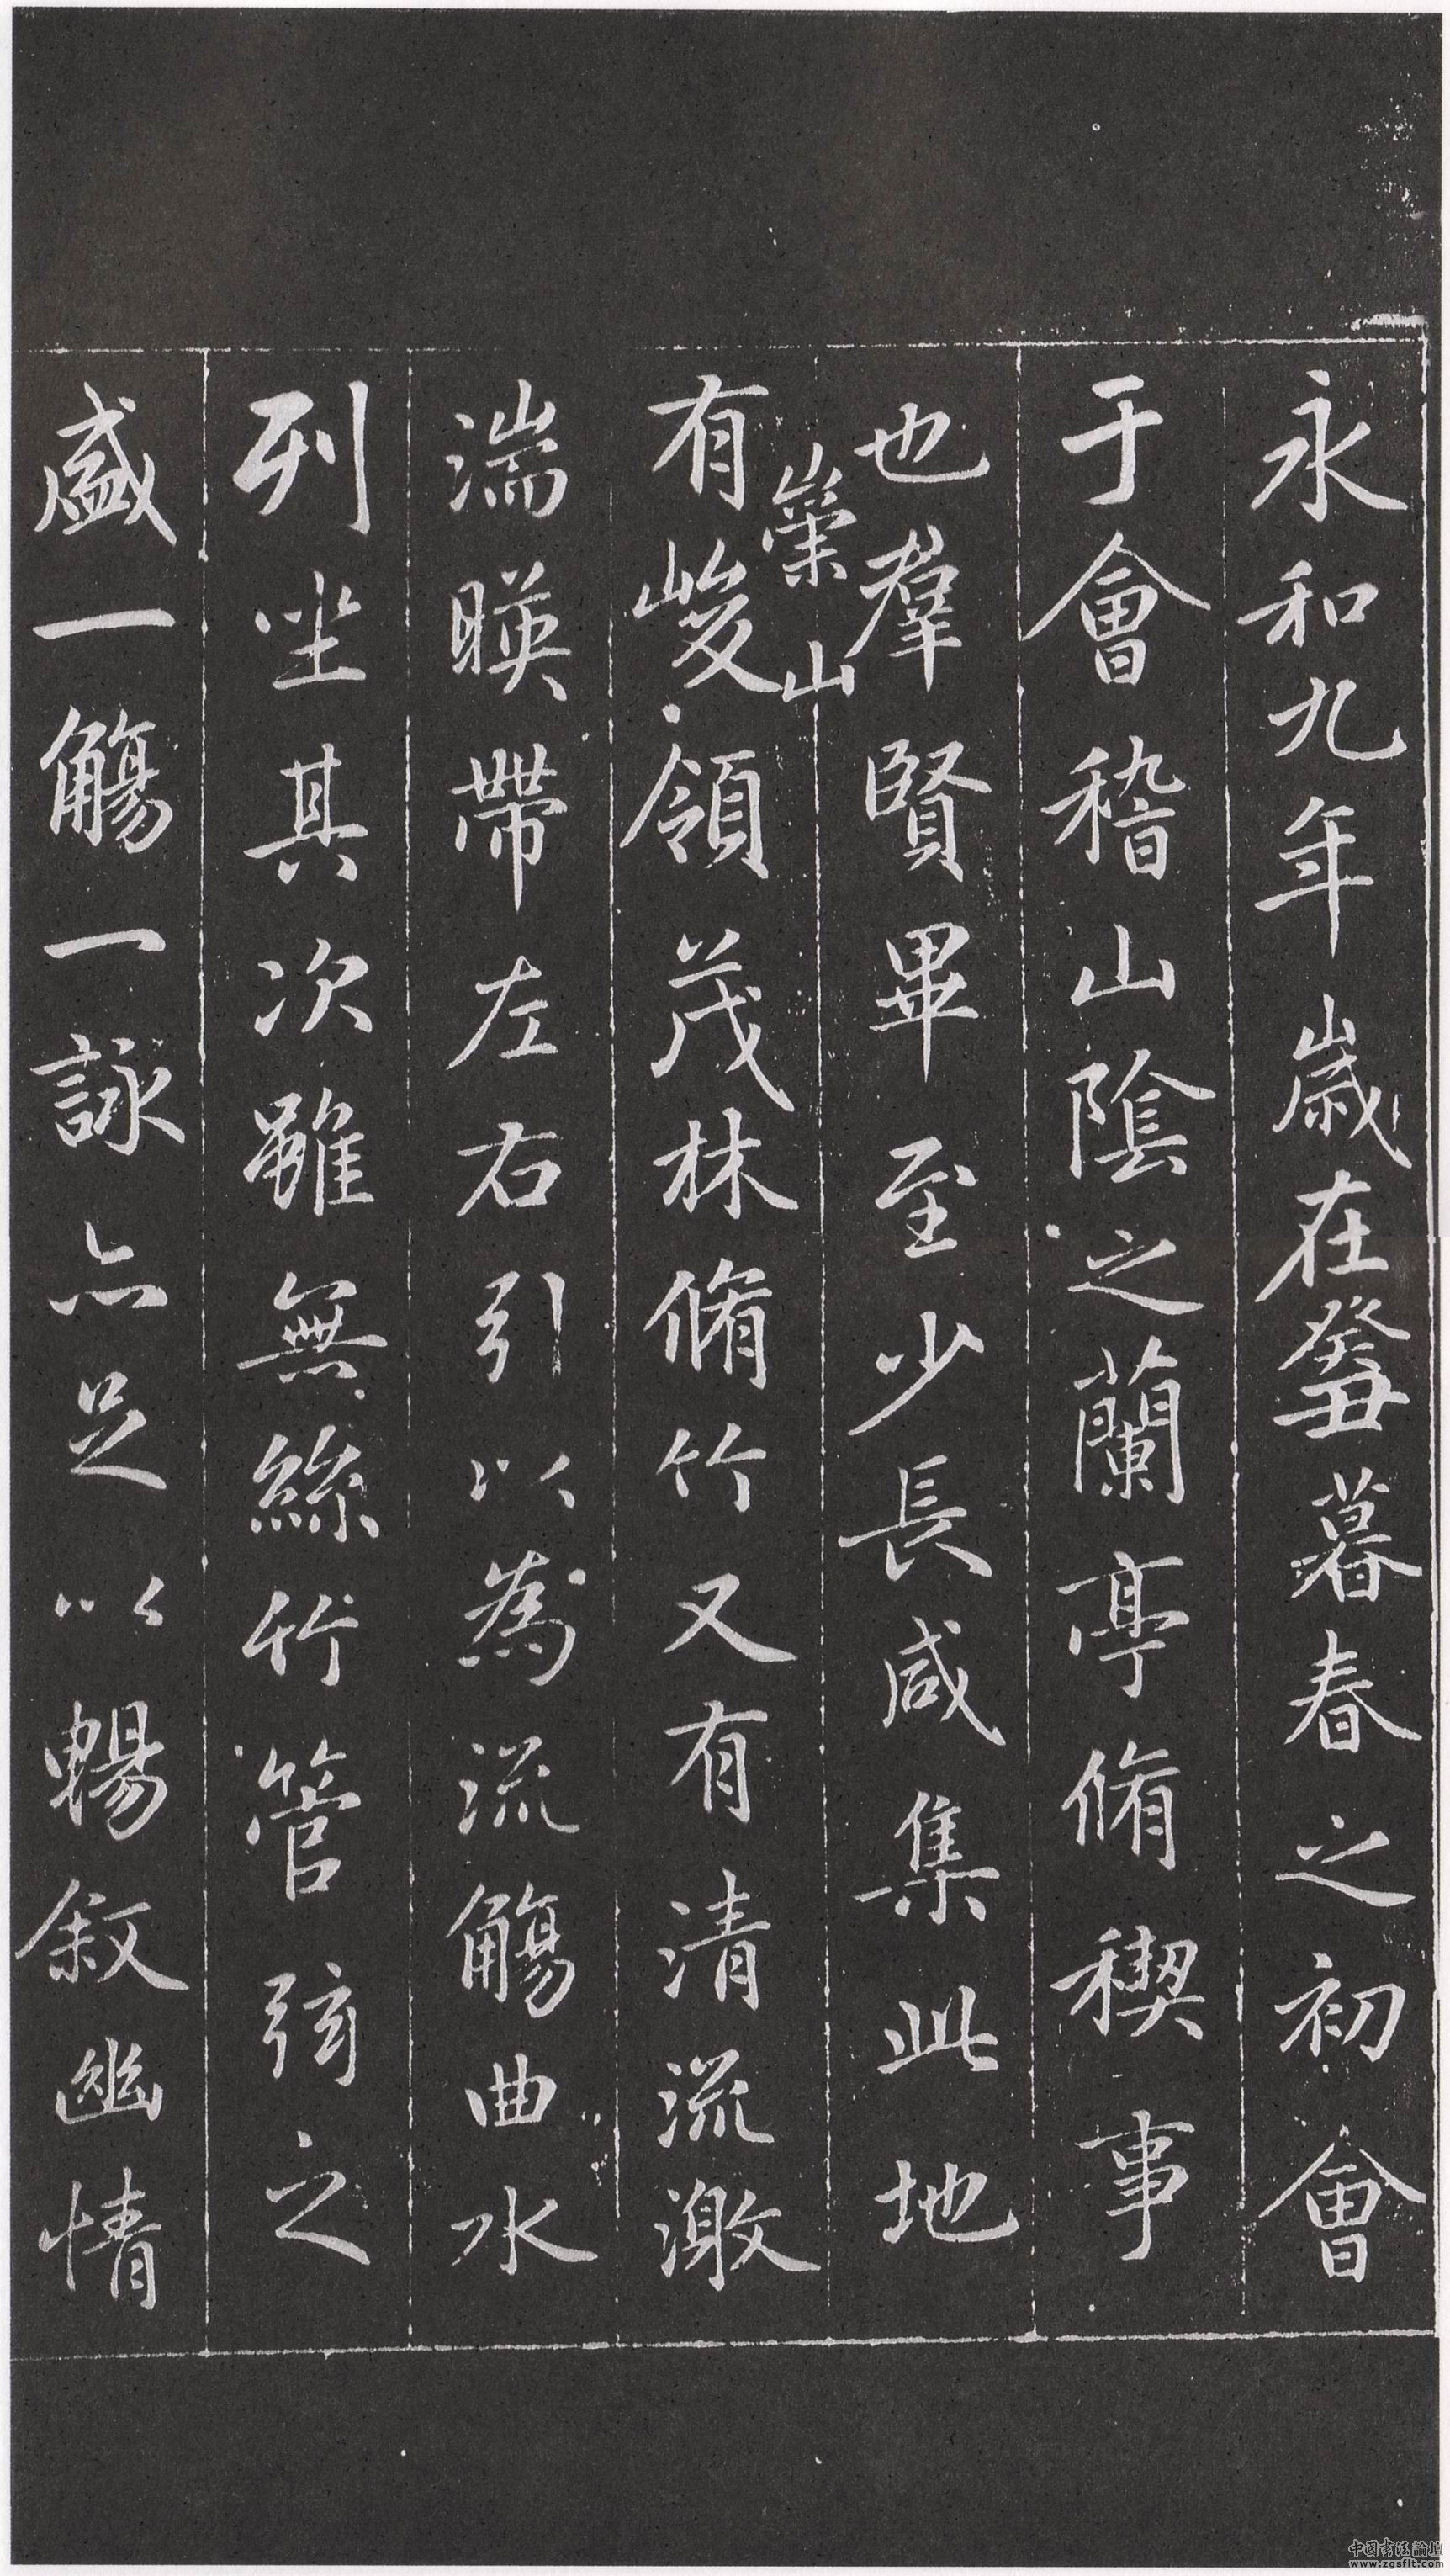 永和九年歲在癸丑暮春之初會
于會稽山陰之蘭亭脩稧事
也羣賢畢至少長咸集此地
崇山
有峻領茂林脩竹又有清流激
湍暎帶左右引以為流觴曲水
列坐其次雖無絲竹管弦之
盛一觴一詠亦足以暢敘幽情
中國書法論壇
www.zgsflt.com